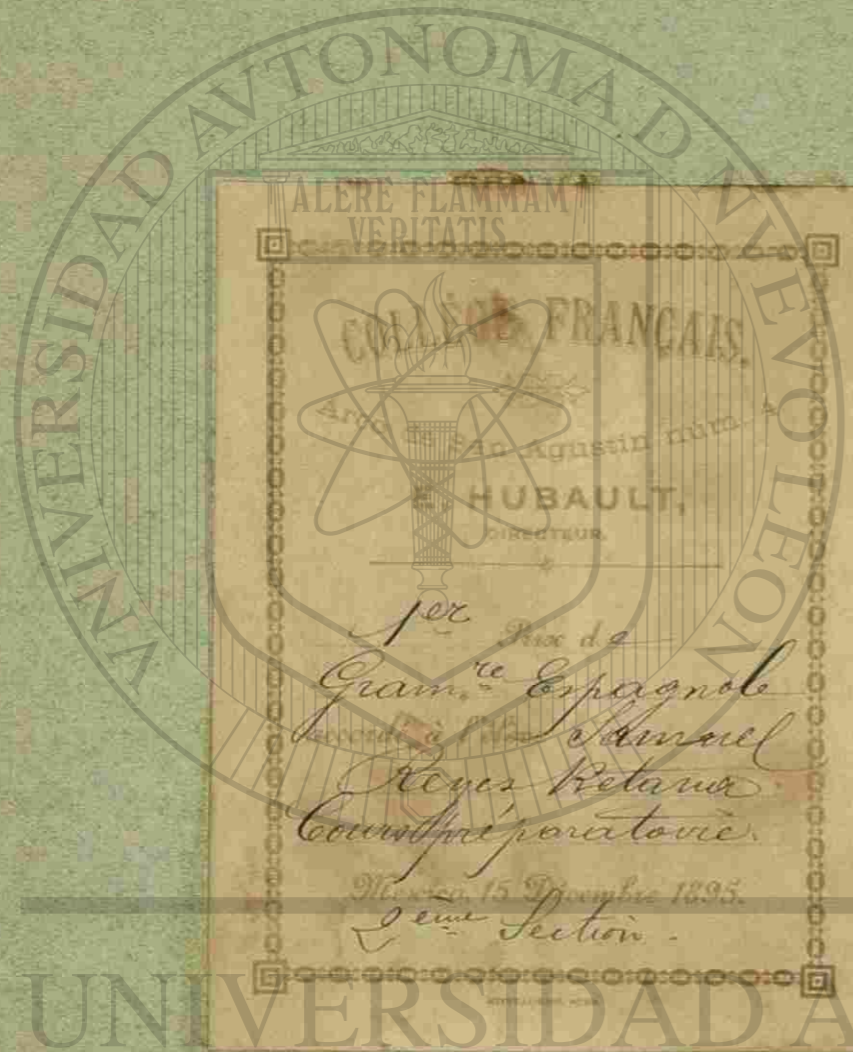 UNIVERSIDAD AVTONOMA D NVEVO LEON
ALERE FLAMMAM
VERITATIS
COLLÈGE FRANÇAIS,
Arco de San Agustin núm. 4
E. HUBAULT,
DIRECTEUR.
1er Prix de
Gram.re Espagnole
accordé à l'élève Samuel
Reyes Retana
Cours préparatoire.
Mexico, 15 Décembre 1895.
2ème Section.
UNIVERSIDAD A